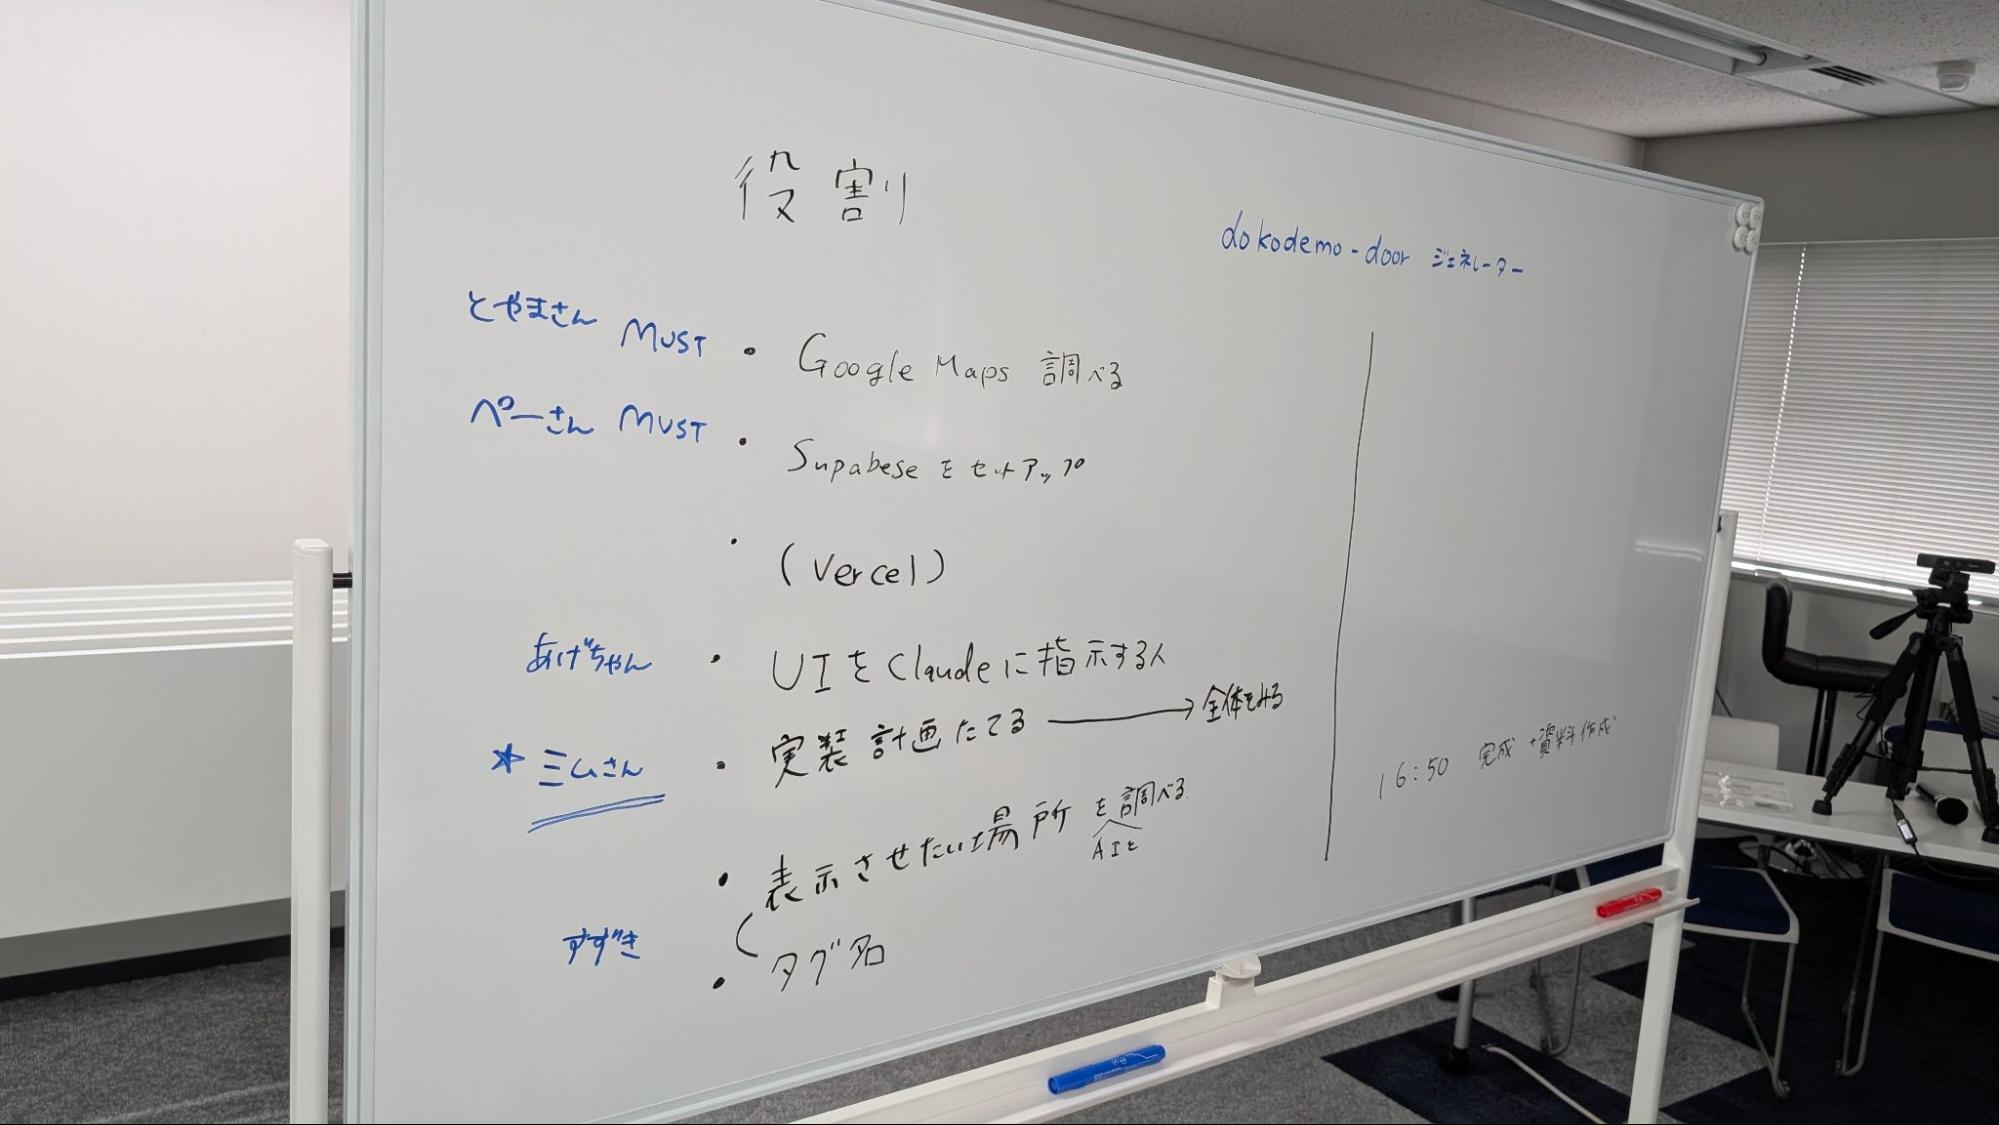 役割
dokodemo-door ジェネレーター
とやまさん MUST ・ Google Maps 調べる
ペーさん MUST ・ Supabese をセットアップ
・ (Vercel)
あげちゃん ・ UIをClaudeに指示する人
☆ミムさん ・ 実装計画たてる → 全体をみる
・ 表示させたい場所を調べる
AIと
すずき
・ タグ名
16:50 完成+資料作成